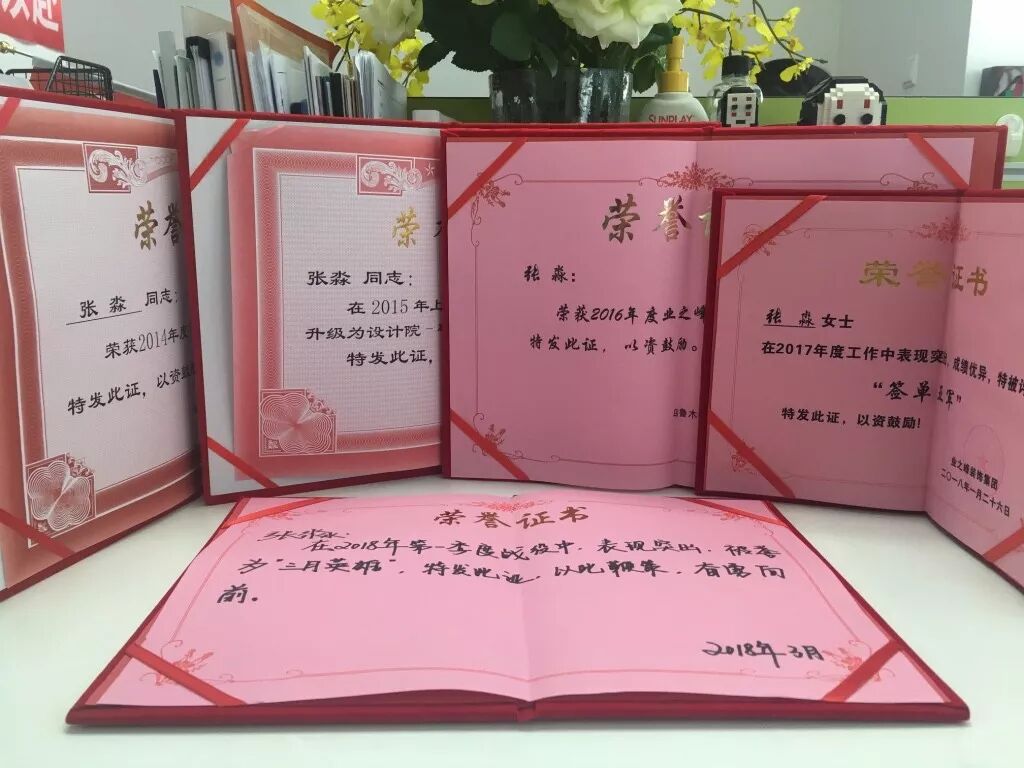 SUNPLAY
荣誉
张淼 同志:
荣获2014年度
特发此证,以资鼓
荣
张淼 同志:
在 2015 年上
升级为设计院
特发此证,
荣誉
张淼:
荣获2016年度业之峰
特发此证,以资鼓励。
鲁木
荣誉证书
张淼女士
在2017年度工作中表现突出,成绩优异,特被
“签单
特发此证,以资鼓励!
业之峰装饰集团
二〇一八年一月二十六日
荣誉证书
在2018年第一季度战役中,表现突出,被荟
为“三月英雄”,特发此证,以此鞭策,有勇向
前。
2018年3月